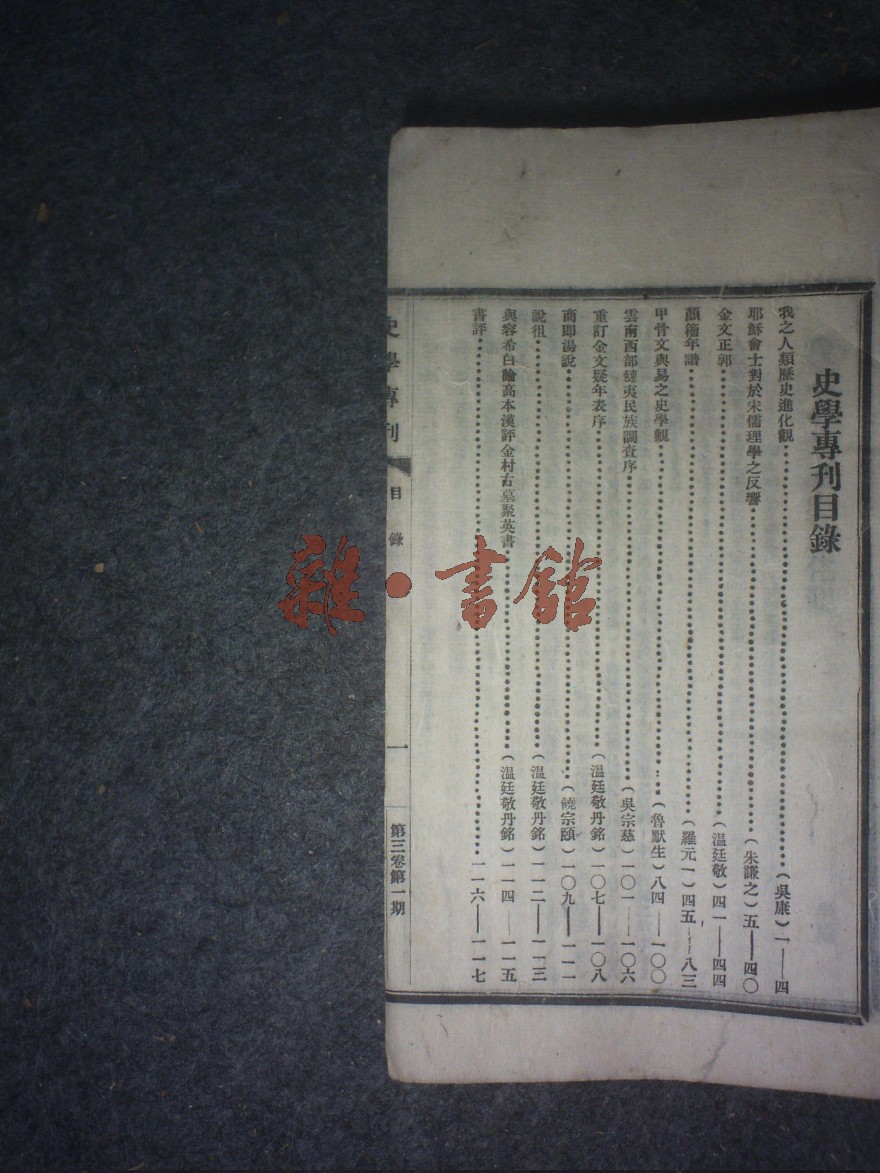 史學專刊目錄
我之人類歷史進化觀……(吳康)一——四
耶穌會士對於宋儒理學之反響……(朱謙之)五——四〇
金文正郭……(溫廷敬)四一——四四
顏籀年譜……(羅元一)四五——八三
甲骨文與易之史學觀……(魯默生)八四——一〇〇
雲南西部僰夷民族調查序……(吳宗慈)一〇一——一〇六
重訂金文疑年表序……(溫廷敬丹銘)一〇七——一〇八
商即湯說……(饒宗頤)一〇九——一一一
說徂……(溫廷敬丹銘)一一二——一一三
與容希白論高本漢評金村古墓聚英書……(溫廷敬丹銘)一一四——一一五
書評……一一六——一一七
史學專刊 目錄 一 第三卷第一期
雜·書館